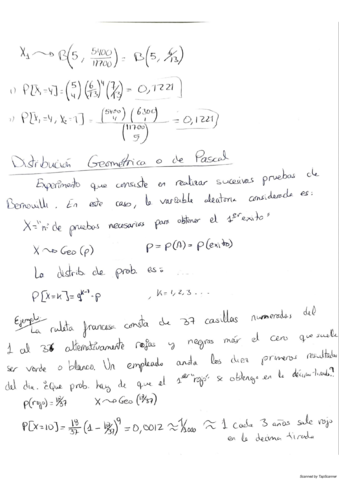 X₁ ~→ B(5, 5400/11700) = B(5, 6/13)
1) P[X₁=4] = (5 4)(6/13)⁴(7/13) = 0,1221
2) P[X₁=4, X₂=1] = (5400 4)(6300 1)/(11700 5) = 0,1221
Distribución Geométrica o de Pascal
Experimento que consiste en realizar sucesivas pruebas de
Bernouilli. En este caso, la variable aleatoria considerada es:
X="nº de pruebas necesarias para obtener el 1er exito"
X ~→ Geo(p) p = P(A) = P(exito)
La distrib de prob. es: ...
P[X=K] = q^(K-1) · p , K=1, 2, 3 . . .
Ejemplo
La ruleta francesa consta de 37 casillas numeradas del
1 al 36 alternativamente rojas y negras más el cero que suele
ser verde o blanco. Un empleado anota los diez primeros resultados
del día. ¿Que prob. hay de que el 1er "rojo" se obtenga en la décima tirada?
P(rojo) = 18/37 X ~→ Geo(18/37)
P[X=10] = 18/37 (1 - 18/37)⁹ = 0,0012 ≈ 1/1000 ≈ 1 cada 3 años sale rojo
en la decima tirada
Scanned by TapScanner